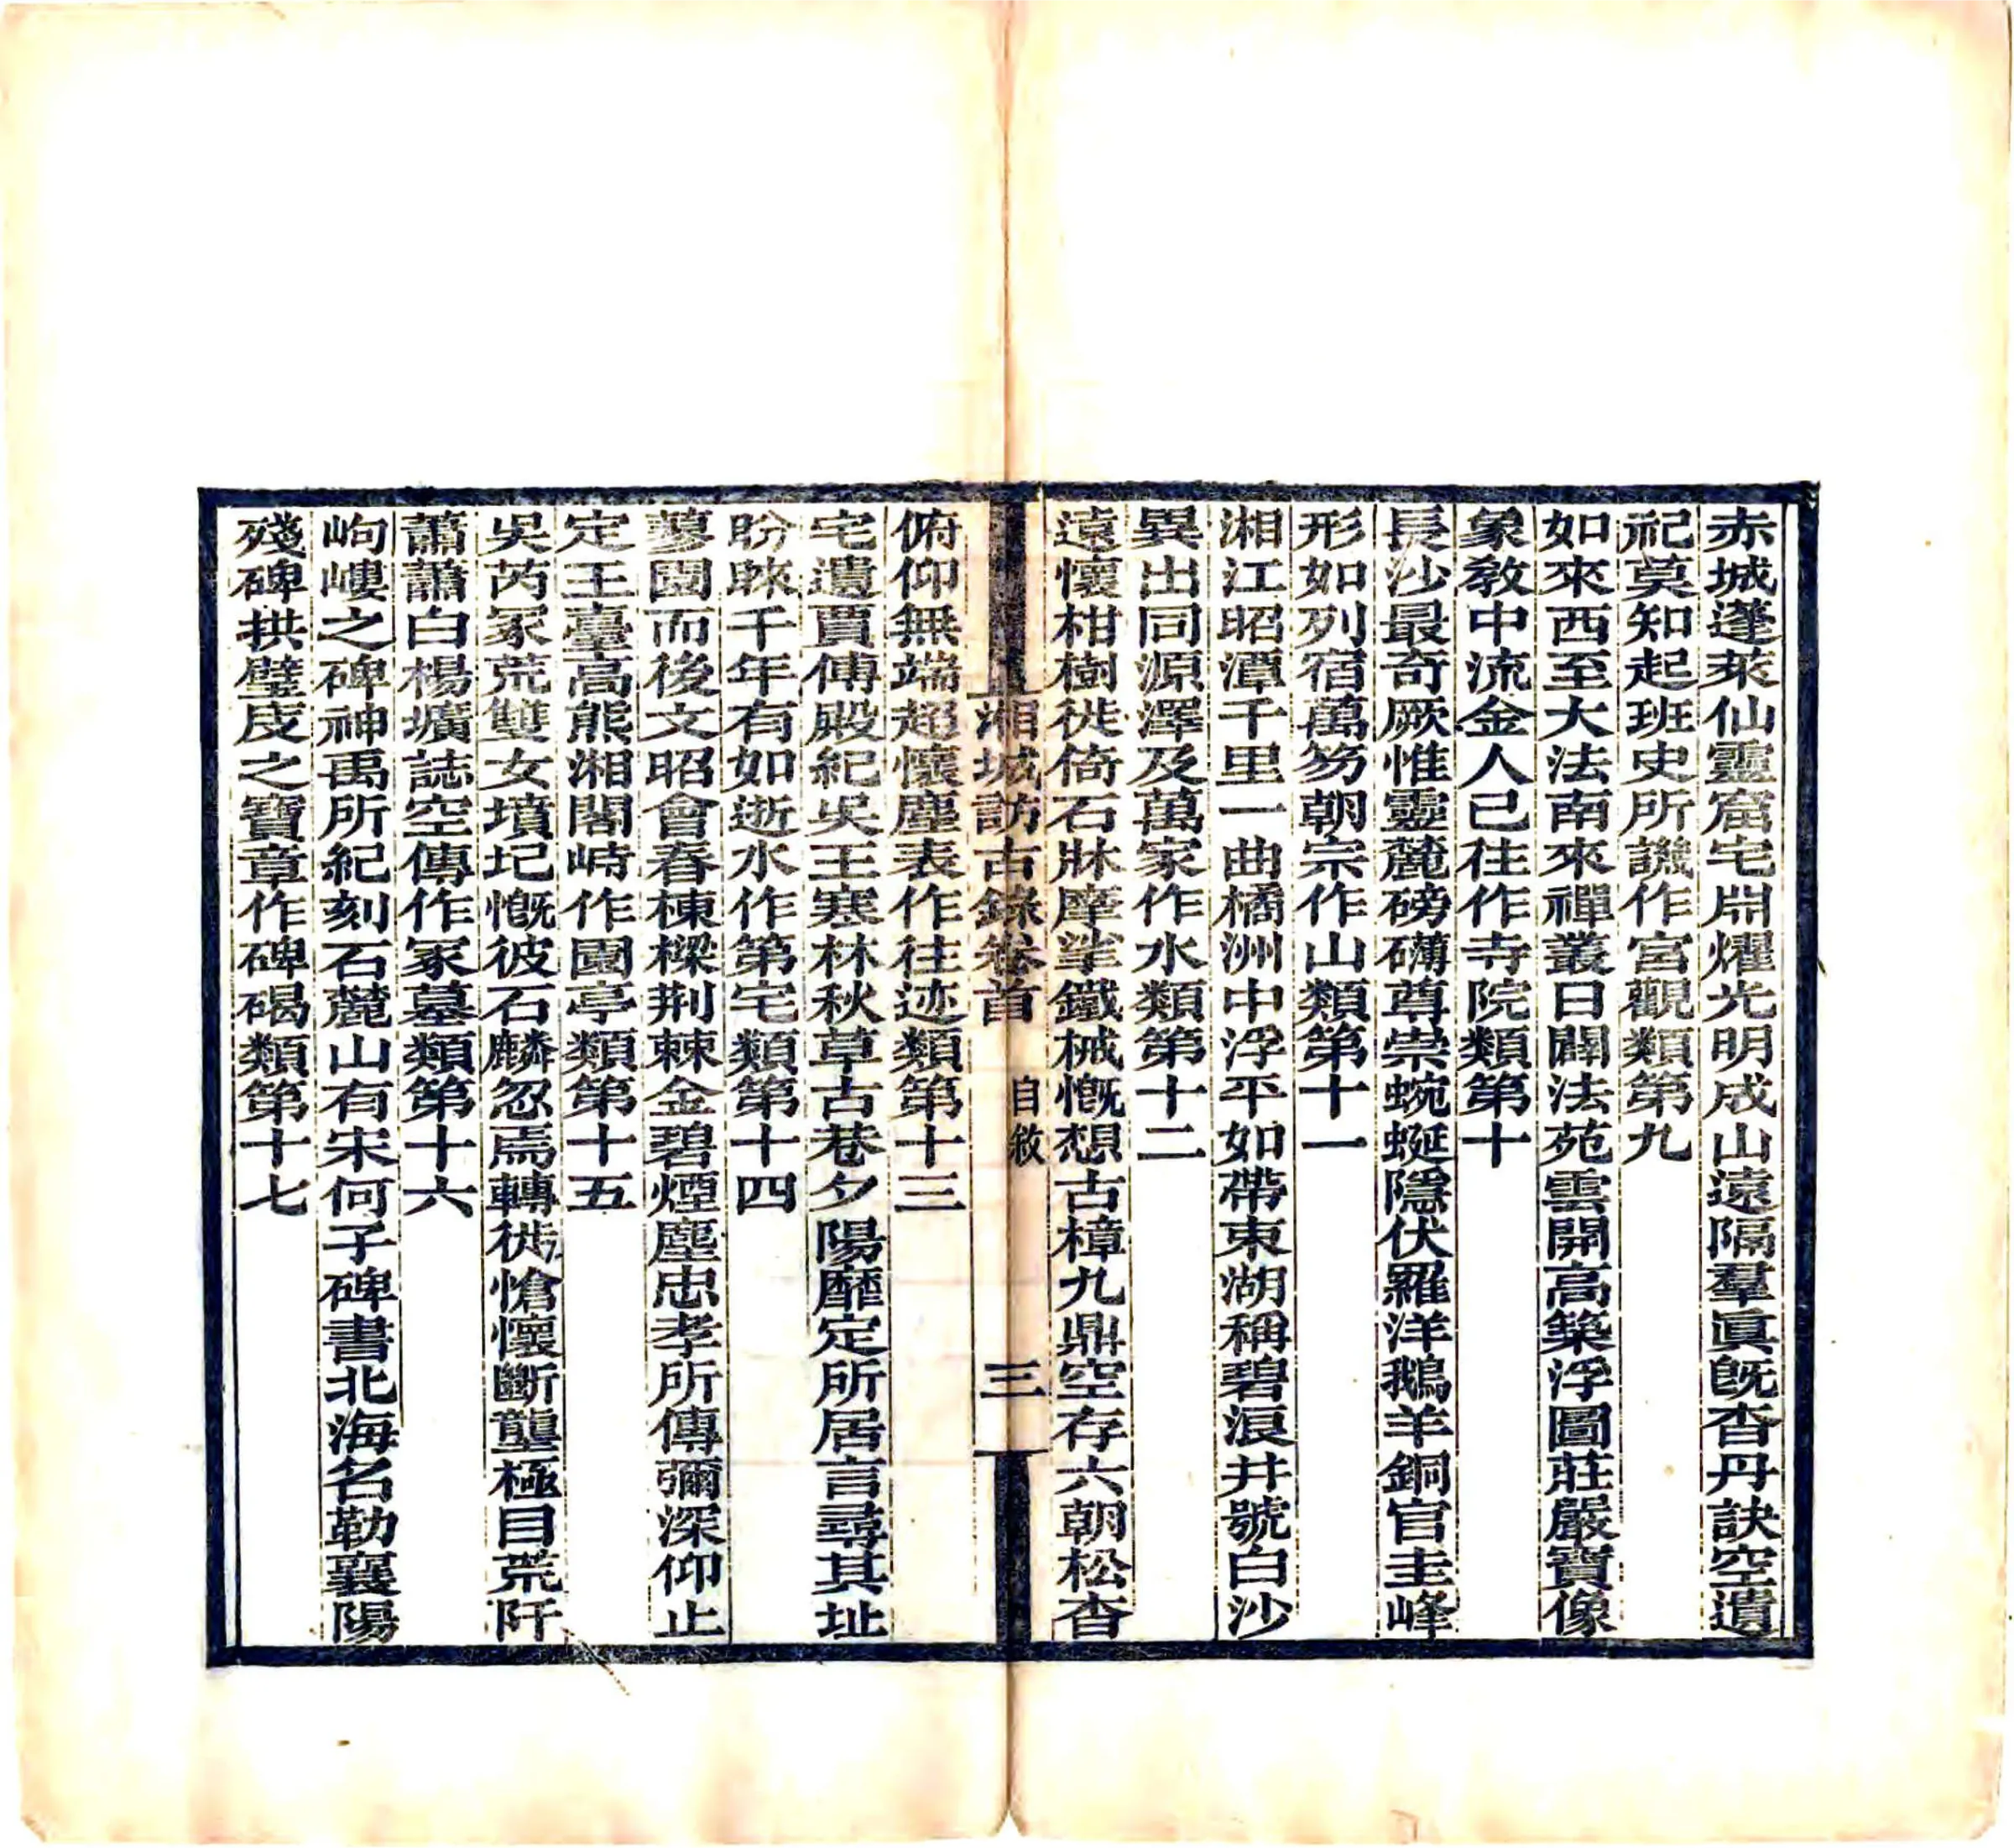 赤城蓬萊仙靈窟宅淵燿光明成山遠隔羣眞旣杳丹訣空遺
祀莫知起班史所譏作宮觀類第九
如來西至大法南來禪叢日闢法苑雲開高築浮圖莊嚴寶像
象敎中流金人已往作寺院類第十
長沙最奇厥惟靈麓磅礴尊崇蜿蜒隱伏羅洋鵝羊銅官圭峰
形如列宿萬笏朝宗作山類第十一
湘江昭潭千里一曲橘洲中浮平如帶東湖稱碧浪井號白沙
異出同源澤及萬家作水類第十二
遠懷柑樹徙倚石牀摩挲鐵械慨想古樟九鼎空存六朝松杳
湘城訪古錄卷首 自敘 三
俯仰無端超懷塵表作往迹類第十三
宅遺賈傅殿紀吳王寒林秋草古巷夕陽靡定所居言尋其址
昐睞千年有如逝水作第宅類第十四
蓼園而後文昭會春棟樑荆棘金碧煙塵忠孝所傳彌深仰止
定王臺高熊湘閣峙作園亭類第十五
吳芮冢荒雙女墳圮慨彼石麟忽焉轉徙愴懷斷壟極目荒阡
蕭蕭白楊壙誌空傳作冢墓類第十六
岣嶁之碑神禹所紀刻石麓山有宋何子碑書北海名勒襄陽
殘碑拱璧庋之寶章作碑碣類第十七